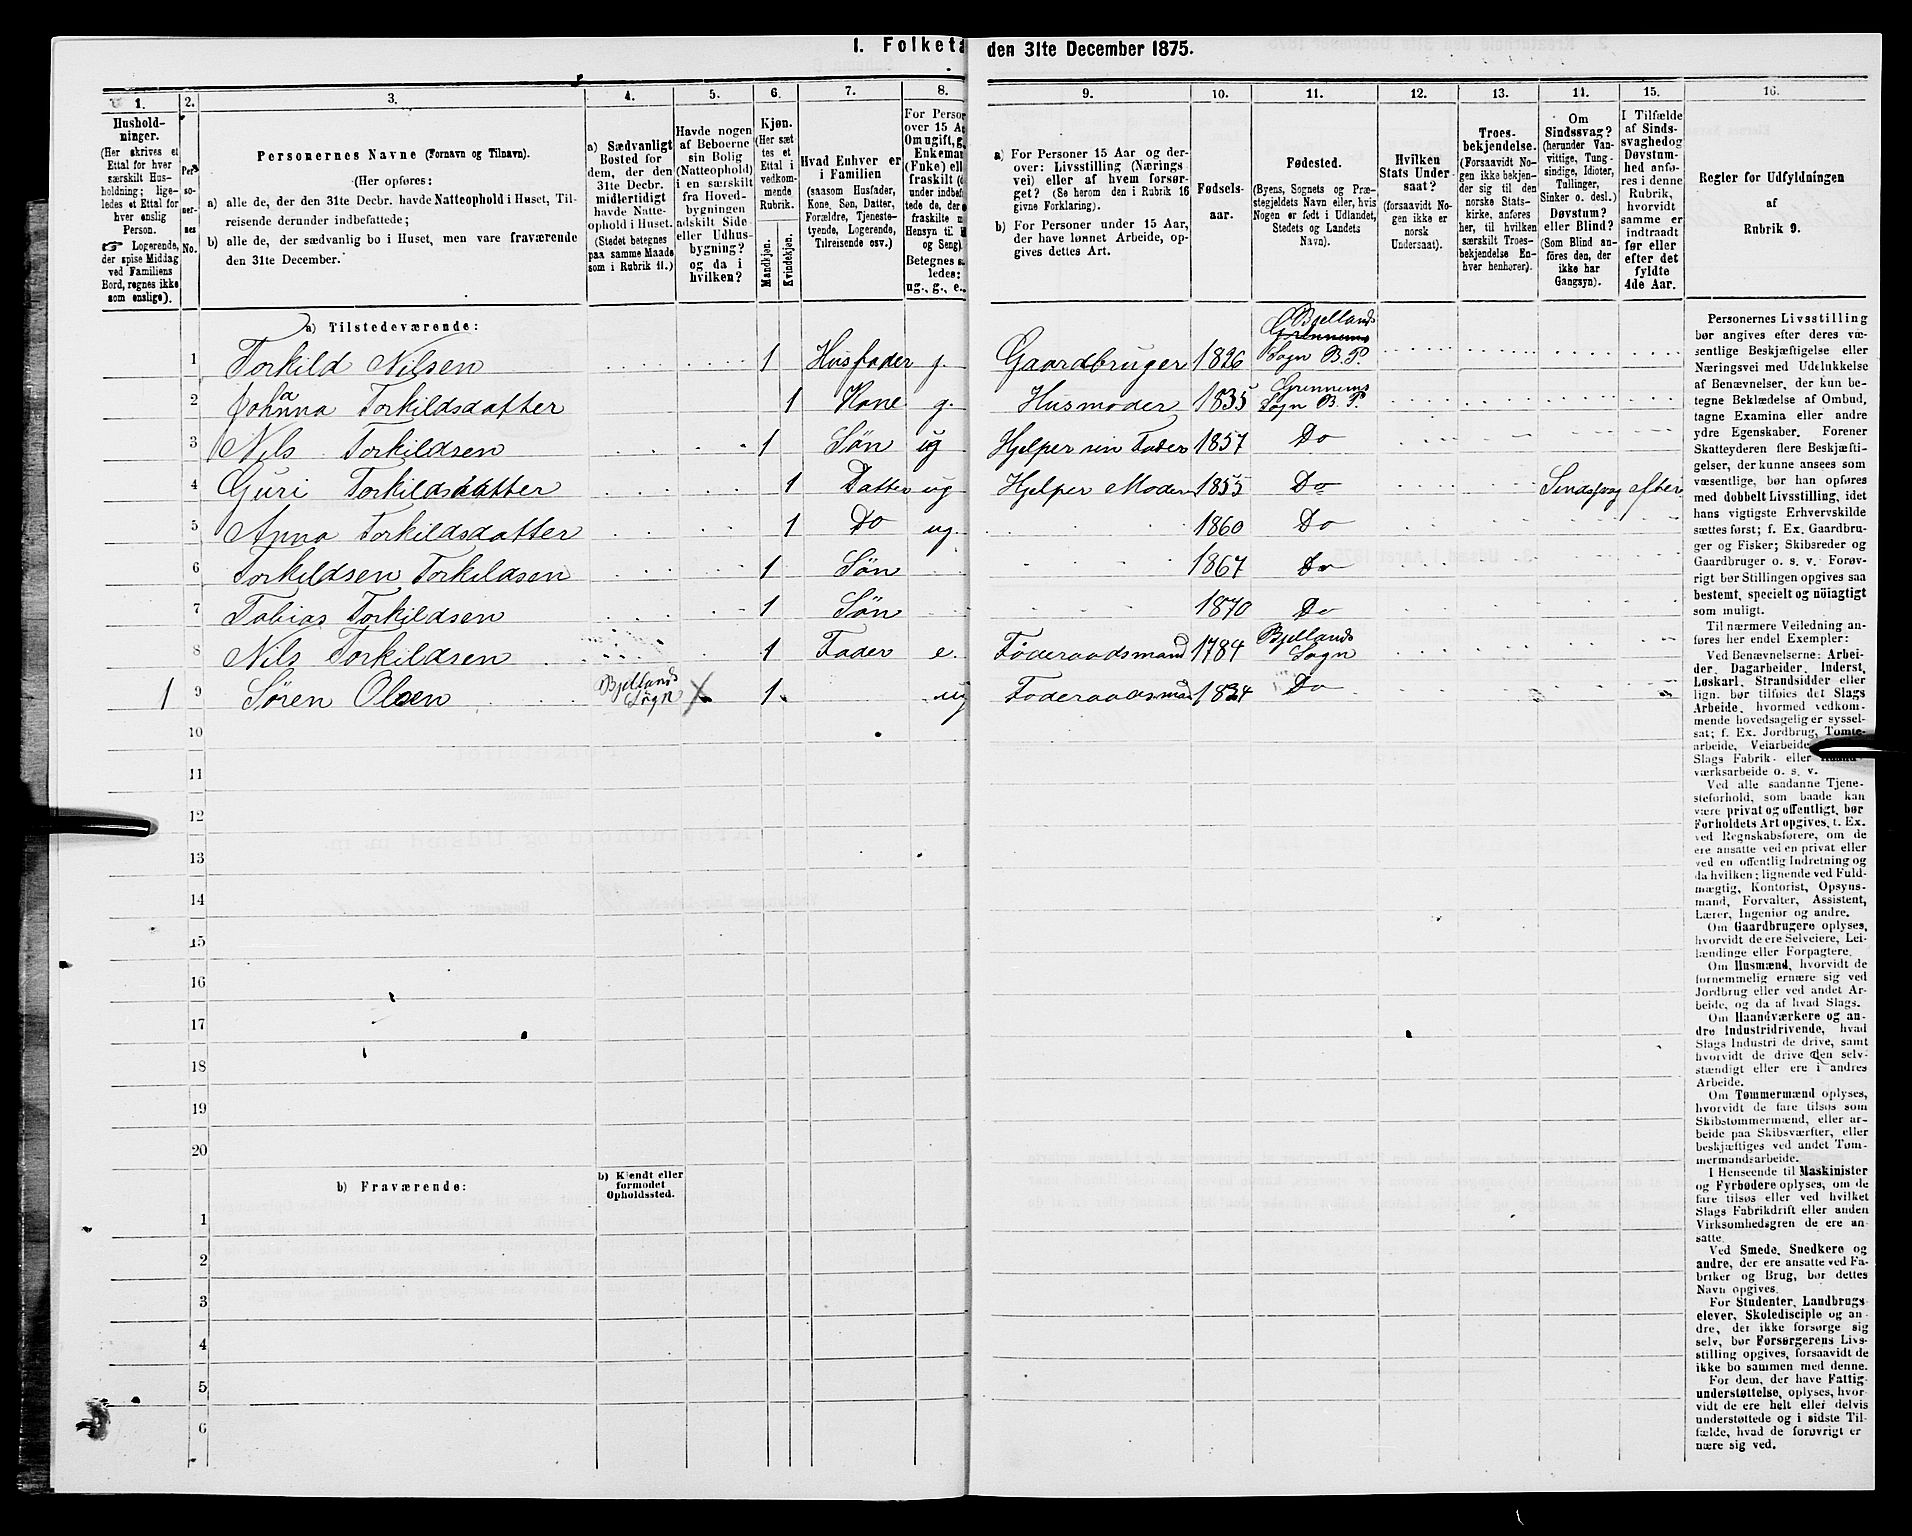 I. Folketæ
den 31te December 1875.
1.
2.
3.
4.
5.
6.
7.
8.
9.
10.
11.
12.
13.
14.
15.
16.
Hushold-
ninger.
(Her skrives et
Ettal for hver
særskilt Hus-
holdning; lige-
ledes et Ettal for
hver enslig
Person.
☞ Logerende,
der spise Middag
ved Familiens
Bord, regnes ikke
som enslige).
Per-
so-
ner-
nes
No.
Personernes Navne (Fornavn og Tilnavn).
(Her opføres:
a) alle de, der den 31te Decbr. havde Natteophold i Huset, Til-
reisende derunder indbefattede;
b) alle de, der sædvanlig bo i Huset, men vare fraværende
den 31te December.
a) Sædvanligt
Bosted for
dem, der den
31te Decbr.
midlertidigt
havde Natte-
ophold i Huset.
(Stedet betegnes
paa samme Maade
som i Rubrik 11.)
Havde nogen
af Beboerne
sin Bolig
(Natteophold)
i en særskilt
fra Hoved-
bygningen
adskilt Side
eller Udhus-
bygning?
og da i
hvilken?
Kjøn.
(Her sæt
tes et
Ettal i
vedkom-
mende
Rubrik.
Mandkjøn.
Kvindekjøn.
Hvad Enhver er
i Familien
(saasom Husfader,
Kone, Søn, Datter,
Forældre, Tjeneste-
tyende, Logerende,
Tilreisende osv.)
For Person
over 15 Aa
Om ugift, g
Enkeman
(Fnke) ell
fraskilt (
under indbef
tede de, der
fraskilte
Hensyn til
og Seng).
Betegnes s
ledes:
ug., g., e.,
a) For Personer 15 Aar og der-
over: Livsstilling (Nærings
vei) eller af hvem forsør-
get? (Se herom den i Rubrik 16
givne Forklaring).
b) For Personer under 15 Aar,
der have lønnet Arbeide, op-
gives dettes Art.
Fødsels-
aar.
Fødested.
(Byens, Sognets og Præ-
stegjeldets Navn eller, hvis
Nogen er født i Udlandet,
Stedets og Landets
Navn).
Hvilken
Stats Under
saat?
(forsaavidt No-
gen ikke er
norsk
Undersaat).
Troes-
bekjendelse.
(Forsaavidt No-
gen ikke bekjen-
der sig til den
norske Stats-
kirke, anføres
her, til hvilken
særskilt Troes-
bekjendelse En-
hver henhører).
Om
Sindssvag?
(herunder Van-
vittige, Tung-
sindige, Idioter,
Tullinger,
Sinker o. desl.)
Døvstum?
eller Blind?
(Som Blind an-
føres den, der
ikke har
Gangsyn).
I Tilfælde
af Sinds-
svaghed og
Døvstum-
hed anfø-
res i denne
Rubrik,
hvorvidt
samme er
indtraadt
før eller
efter det
fyldte
4de Aar.
Regler for Udfyldningen
af
Rubrik 9.
a) Tilstedeværende:
1 Torkild Nilsen 1 Husfader g. Gaardbruger 1826 Bjellands Sogn B. P.
2 Johanna Torkildsdatter 1 Kone g. Husmoder 1835 Grennems Sogn B. P.
3 Nils Torkildsen 1 Søn ug Hjelper sin Fader 1857 Do
4 Guri Torkildsdatter 1 Datter ug Hjelper Moder 1855 Do Sindssvag efter
5 Anna Torkildsdatter 1 Do ug. 1860 Do
6 Torkildsen Torkildsen 1 Søn 1867 Do
7 Tobias Torkildsen 1 Søn 1870 Do
8 Nils Torkildsen 1 Fader e. Føderaadsmand 1784 Bjellands Sogn
1 9 Søren Olsen Bjellands Sogn X 1 ug Føderaadsmand 1824 Do
10
11
12
13
14
15
16
17
18
19
20
b) Fraværende:
b) Kjendt eller
formodet
Opholdssted.
1
2
3
4
5
6
Personernes Livsstilling
bør angives efter deres væ-
sentlige Beskjæftigelse eller
Næringsvei med Udelukkelse
af Benævnelser, der kun be-
tegne Beklædelse af Ombud,
tagne Examina eller andre
ydre Egenskaber. Forener
Skatteyderen flere Beskjæfti-
gelser, der kunne ansees som
væsentlige, bør han opføres
med dobbelt Livsstilling, idet
hans vigtigste Erhvervskilde
sættes først; f. Ex. Gaardbru-
ger og Fisker; Skibsreder og
Gaardbruger o. s. v. Forøv-
rigt bør Stillingen opgives saa
bestemt, specielt og nøiagtigt
som muligt.
Til nærmere Veiledning an-
føres her endel Exempler:
Ved Benævnelserne: Arbei-
der, Dagarbeider, Inderst,
Løskarl, Strandsidder eller
lign. bør tilføies det Slags
Arbeide, hvormed vedkom-
mende hovedsagelig er syssel-
sat; f. Ex. Jordbrug, Tomte-
arbeide, Veiarbeide
Slags Fabrik- eller Haand-
værksarbeide o. s. v.
Ved alle saadanne Tjene-
steforhold, som baade kan
være privat og offentligt, bør
Forholdets Art opgives, t. Ex.
ved Regnskabsførere, om de
ere ansatte ved en privat eller
ved en offentlig Indretning og
da hvilken; lignende ved Fuld-
mægtig, Kontorist, Opsyns-
mand, Forvalter, Assistent,
Lærer, Ingeniør og andre.
Om Gaardbrugere oplyses,
hvorvidt de ere Selveiere, Lei-
lændinge eller Forpagtere.
Om Husmænd, hvorvidt de
fornemmelig ernære sig ved
Jordbrug eller ved andet Ar-
beide, og da af hvad Slags.
Om Haandværkere og an-
dre Industridrivende, hvad
Slags Industri de drive, samt
hvorvidt de drive den selv-
stændigt eller ere i andres
Arbeide.
Om Tømmermænd oplyses,
hvorvidt de fare tilsøs som
Skibstømmermænd, eller ar-
beide paa Skibsværfter, eller
beskjæftiges ved andet Tøm-
mermandsarbeide.
I Henseende til Maskinister
og Fyrbødere oplyses, om de
fare tilsøs eller ved hvilket
Slags Fabrikdrift eller anden
Virksomhedsgren de ere an-
satte.
Ved Smede, Snedkere og
andre, der ere ansatte ved Fa-
briker og Brug, bør dettes
Navn opgives.
For Studenter, Landbrugs
elever, Skoledisciple og an-
dre, der ikke forsørge sig
selv, bør Forsørgerens Livs-
stilling opgives, forsaavidt de
ikke bo sammen med denne.
For dem, der have Fattig-
understøttelse, oplyses, hvor-
vidt de ere helt eller delvis
understøttede og i sidste Til-
fælde, hvad de forøvrigt er
nære sig ved.